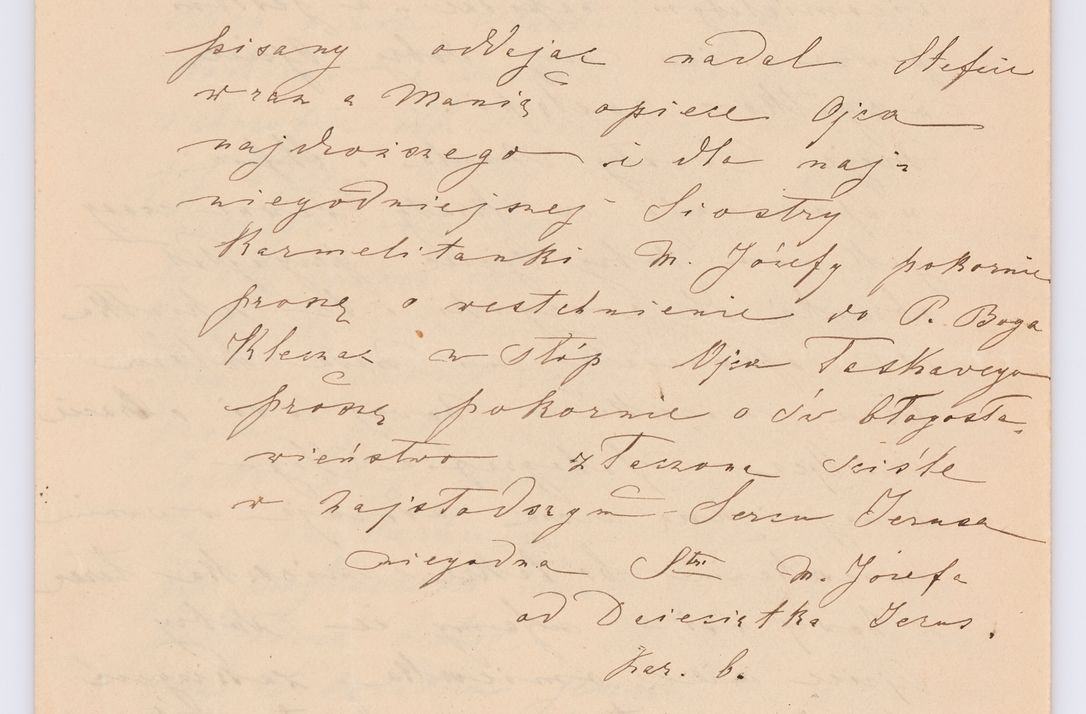 pisany oddając nadal Stefcie
wraz z Manią opiece Ojca
najdroższego i dla naj=
niegodniejszej Siostry
Karmelitanki M. Józefy pokornie
proszę o westchnienie do P. Boga
Klecząc w stóp Ojca Łaskawego
proszę pokornie o św błogosła„
wieństwo złączona ściśle
w Najsłodszym Sercu Jezusa
niegodna Str. M. Józefa
od Dzieciątka Jezus.
kar. b.